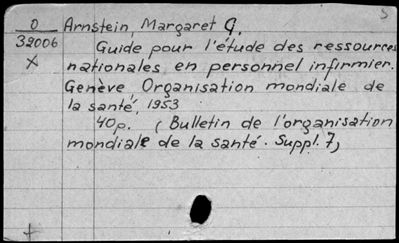 S
O Arnstein, Margaret G.
32006 Guide pour l'étude des ressources
X nationales en personnel infirmier.
Genève, Organisation mondiale de
la santé, 1953
40p. (Bulletin de l'organisation
mondiale de la santé. Suppl. 7)
+